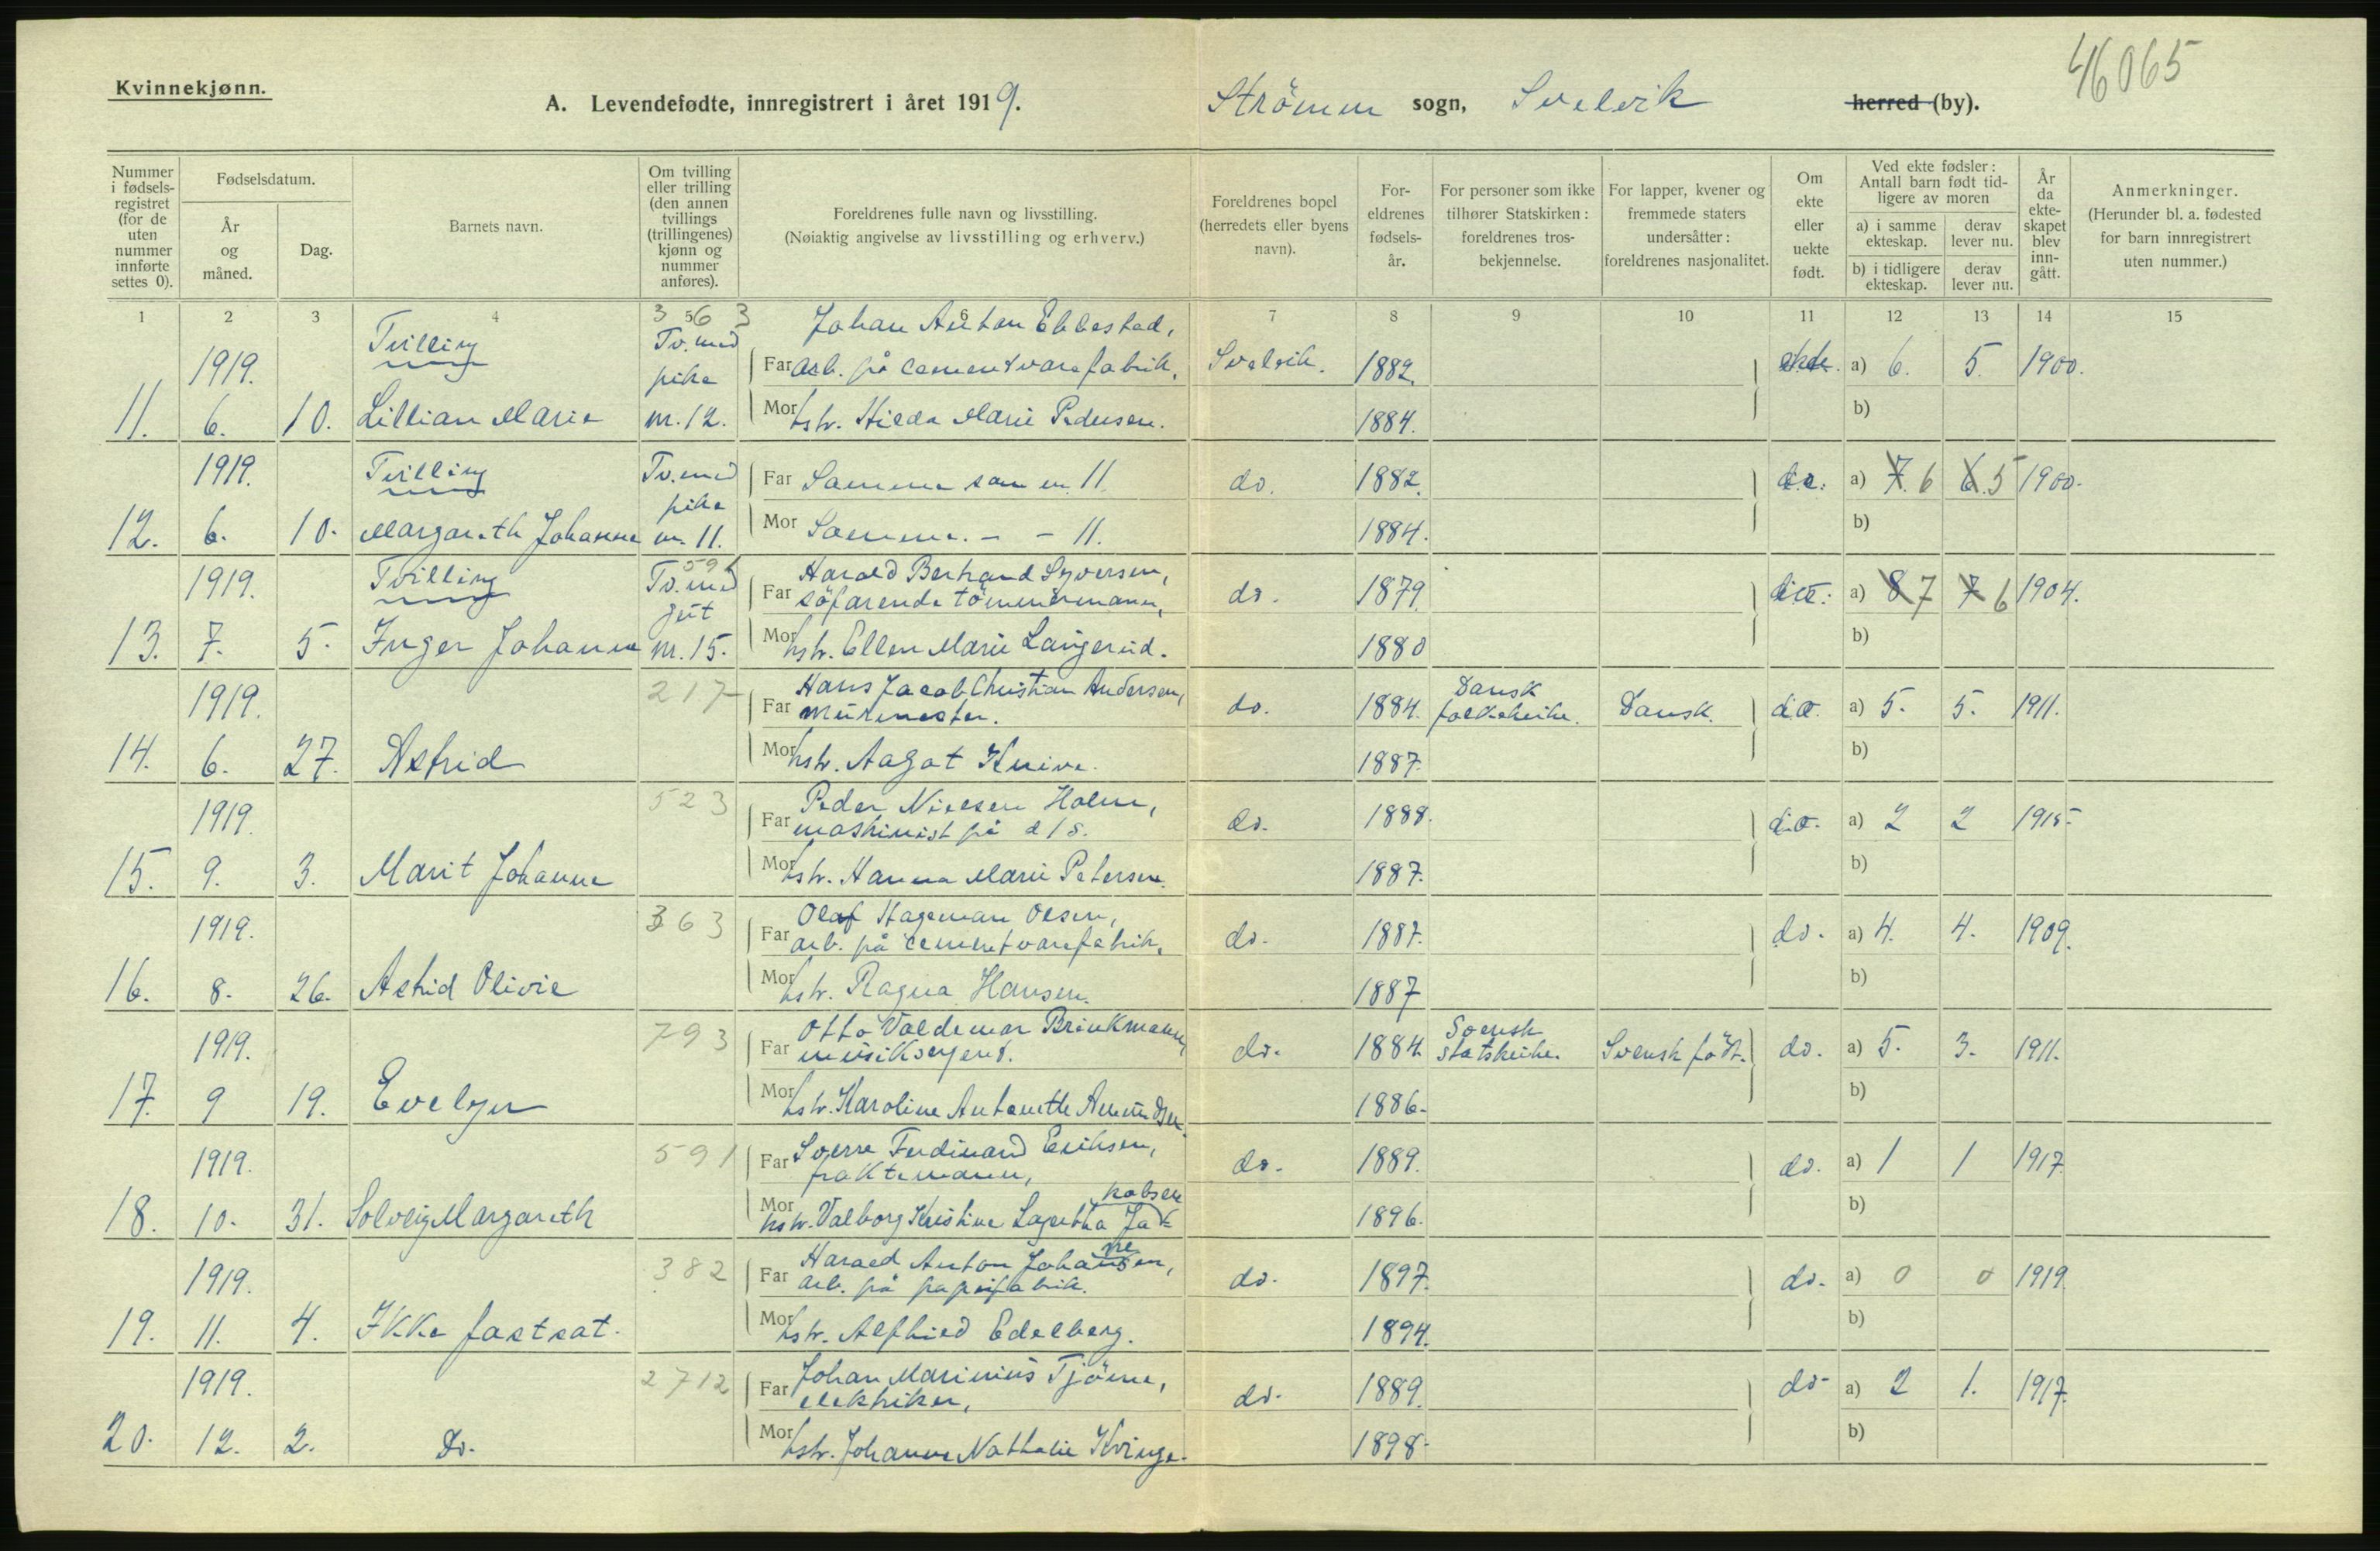 46065
Kvinnekjønn.
A. Levendefødte, innregistrert i året 1919. Strömm sogn, Svelvik herred (by).
Nummer i fødselsregistret (for de uten nummer innførte settes 0).
Fødselsdatum.
År og måned.
Dag.
Barnets navn.
Om tvilling eller trilling (den annen tvillings (trillingenes) kjønn og nummer anføres).
Foreldrenes fulle navn og livsstilling.
(Nøiaktig angivelse av livsstilling og erhverv.)
Foreldrenes bopel (herredets eller byens navn).
Foreldrenes fødselsår.
For personer som ikke tilhører Statskirken: foreldrenes trosbekjennelse.
For lapper, kvener og fremmede staters undersåtter: foreldrenes nasjonalitet.
Om ekte eller uekte født.
Ved ekte fødsler: Antall barn født tidligere av moren
a) i samme ekteskap. derav lever nu.
b) i tidligere ekteskap. derav lever nu.
År da ekteskapet blev inngått.
Anmerkninger.
(Herunder bl. a. fødested for barn innregistrert uten nummer.)
1 2 3 4 5 6 7 8 9 10 11 12 13 14 15
363
Johan Anton Ebbestad,
1919. Tvilling Tv. med pike Far arb. på cementvarefabrik, Svelvik. 1882. ekte. a) 6. 5. 1900.
11. 6. 10. Lillian Marie nr. 12. Mor hstr. Hilda Marie Pedersen. 1884. b)
1919. Tvilling Tv. med pike Far Samme som nr. 11. do. 1882. do. a) 7. 6 6. 5 1900.
12. 6. 10. Margareth Johanne nr. 11. Mor Samme. - - 11. 1884. b)
591
Harald Bertrand Syversen,
1919. Tvilling Tv. med gut Far söfarende tömmermann, do. 1879. do. a) 8 7 7 6 1904.
13. 7. 5. Inger Johanne nr. 15. Mor hstr. Ellen Marie Langerud. 1880 b)
217
Hans Jacob Christian Andersen,
1919. Far murmester. do. 1884. Dansk folkekirke. Dansk. do. a) 5. 5. 1911.
14. 6. 27. Astrid Mor hstr. Aagot Knive. 1887. b)
523
Peder Nielsen Holm,
1919. Far maskinist på d/s. do. 1888. do. a) 2 2 1915.
15. 9. 3. Marit Johanne Mor hstr. Hanna Marie Petersen. 1887. b)
363
Olaf Hageman Olsen,
1919. Far arb. på cementvarefabrik, do. 1887. do. a) 4. 4. 1909.
16. 8. 26. Astrid Olivie Mor hstr. Ragna Hansen. 1887 b)
793
Otto Valdemar Brinkmann,
1919. Far musiksergent. do. 1884. Svensk statskirke. Svensk födt. do. a) 5. 3. 1911.
17. 9 19. Evelyn Mor hstr. Karoline Antonette Amundsen. 1886. b)
591
Sverre Ferdinand Eriksen,
1919. Far fraktemann, do. 1889. do. a) 1 1 1917.
18. 10. 31. Solveig Margareth Mor hstr. Valborg Kristine Lagertha Jakobsen 1896. b)
382
Harald Anton Johannesen,
1919. Far arb. på papirfabrik. do. 1897. do. a) 0 0 1919.
19. 11. 4. Ikke fastsat. Mor hstr. Alfhild Edelberg. 1894. b)
2712
Johan Marinius Tjöme,
1919. Far elektriker, do. 1889. do. a) 2 1. 1917.
20. 12. 2. Do. Mor hstr. Johanne Nathalie Kvinge. 1898. b)